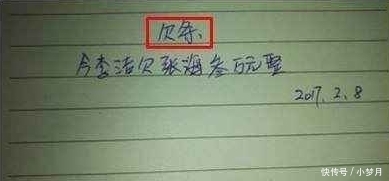 欠条
今李洁欠张海叁万元整
2017.2.8
快传号/小梦月